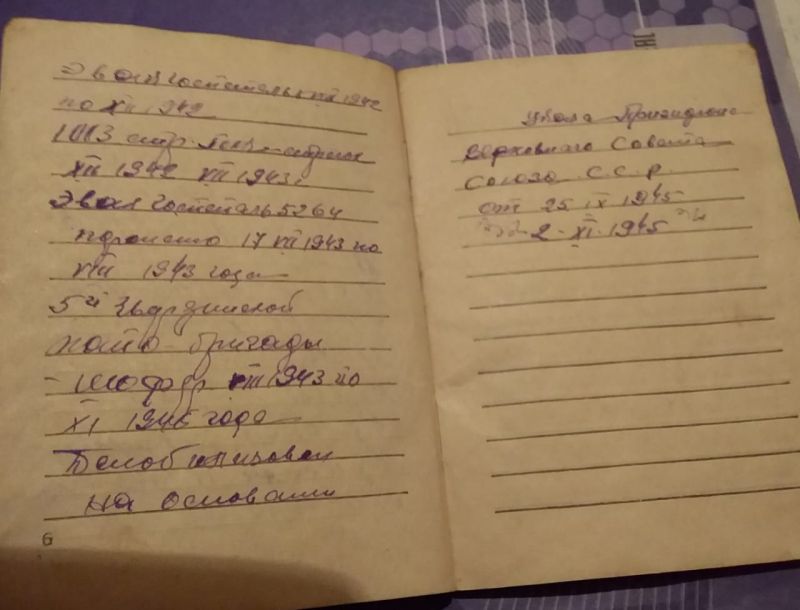 Эвак госпиталь VIII 1942
по XII 1942
1013 стр. полк - стрелок
XII 1942 VII 1943 г
Эвак госпиталь 5264
17 VII 1943 по
VIII 1943 года
5й Гвардейской
мото - бригады
- шофер VIII 1943 по
XI 1945 года
на основании
6
Указа Президиума
Верховного Совета
Союза С.С.Р.
от 25 IX 1945
2 - XI - 1945